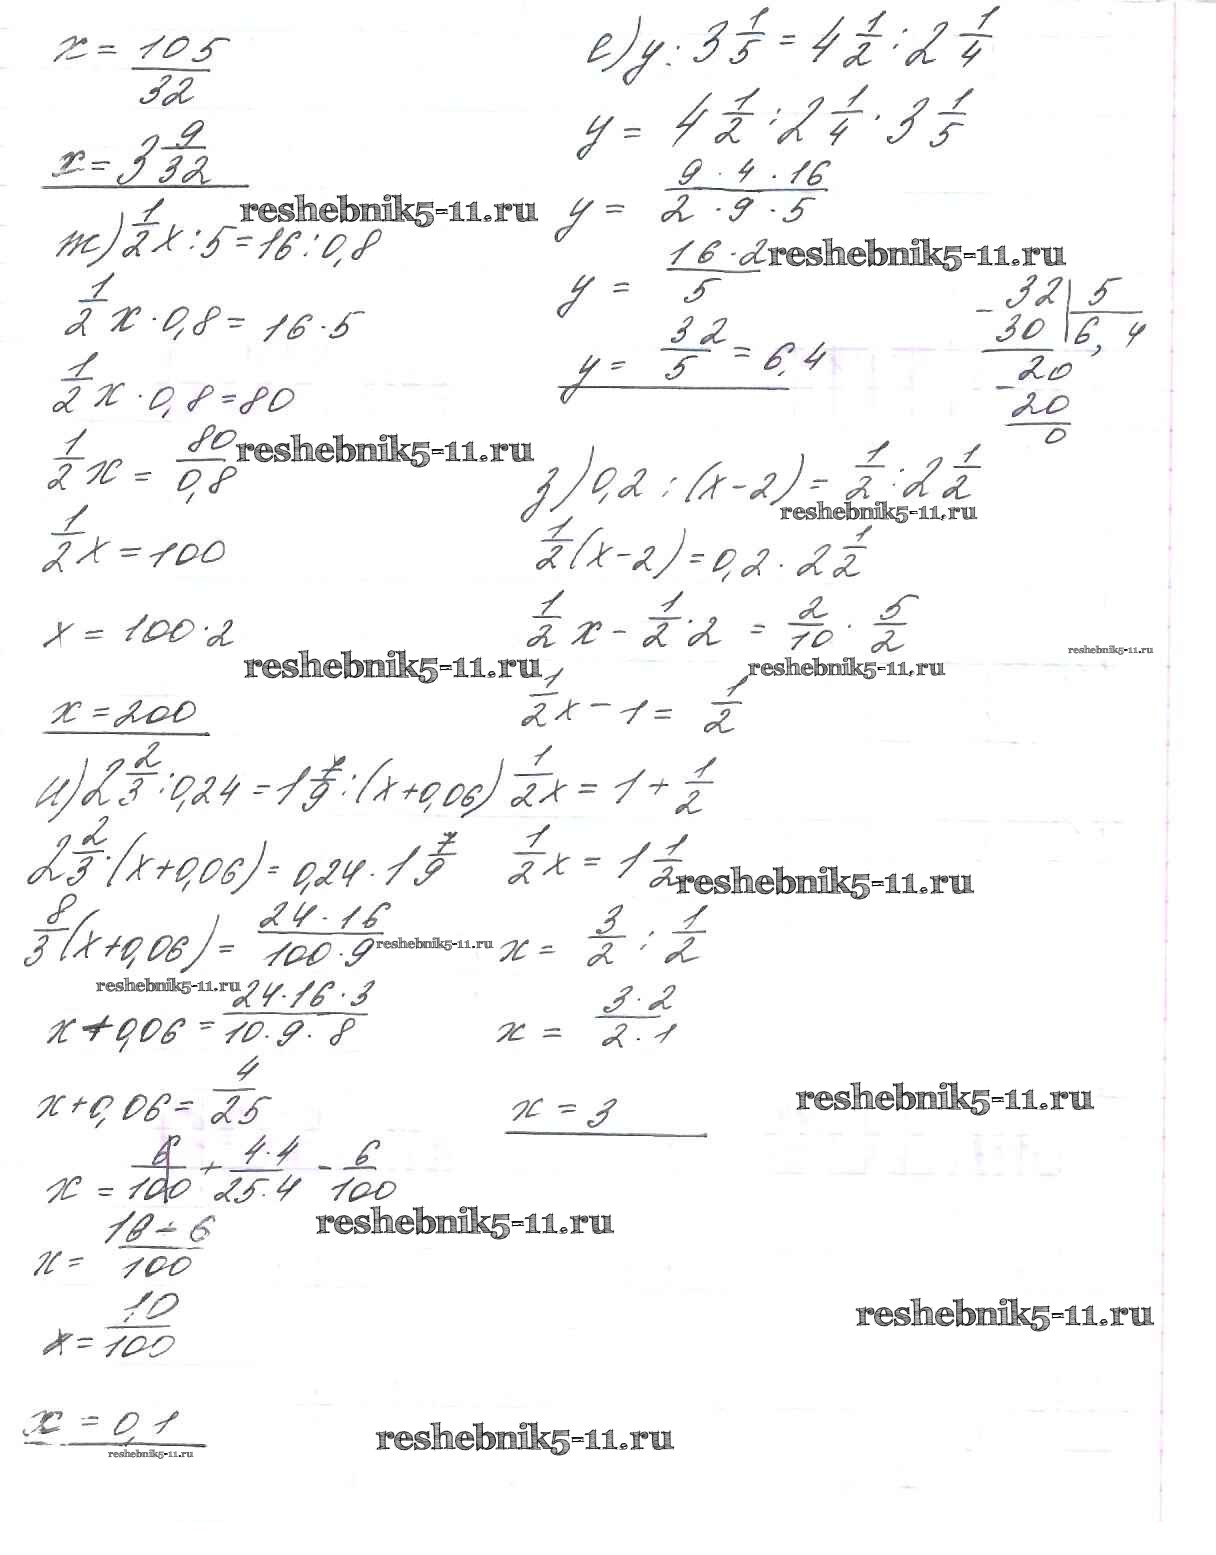 x = 105/32
x = 3 9/32
reshebnik5-11.ru
ж) 1/2 x : 5 = 16 : 0,8
1/2 x · 0,8 = 16 · 5
1/2 x · 0,8 = 80
1/2 x = 80/0,8
reshebnik5-11.ru
1/2 x = 100
x = 100 · 2
reshebnik5-11.ru
x = 200
и) 2 2/3 : 0,24 = 1 7/9 : (x + 0,06)
2 2/3 · (x + 0,06) = 0,24 · 1 7/9
8/3 (x + 0,06) = 24 · 16/100 · 9
reshebnik5-11.ru
reshebnik5-11.ru
x + 0,06 = 24 · 16 · 3/10 · 9 · 8
x + 0,06 = 4/25
x = 6/100 + 4 · 4/25 · 4 - 6/100
reshebnik5-11.ru
x = 16 - 6/100
x = 10/100
x = 0,1
reshebnik5-11.ru
е) y : 3 1/5 = 4 1/2 : 2 1/4
y = 4 1/2 : 2 1/4 · 3 1/5
y = 9 · 4 · 16/2 · 9 · 5
y = 16 · 2/5
reshebnik5-11.ru
y = 32/5 = 6,4
- 32 | 5
30 | 6,4
- 20
20
0
з) 0,2 : (x - 2) = 1/2 : 2 1/2
reshebnik5-11.ru
1/2 (x - 2) = 0,2 · 2 1/2
1/2 x - 1/2 · 2 = 2/10 · 5/2
reshebnik5-11.ru
reshebnik5-11.ru
1/2 x - 1 = 1/2
1/2 x = 1 + 1/2
1/2 x = 1 1/2
reshebnik5-11.ru
x = 3/2 : 1/2
x = 3 · 2/2 · 1
x = 3
reshebnik5-11.ru
reshebnik5-11.ru
reshebnik5-11.ru